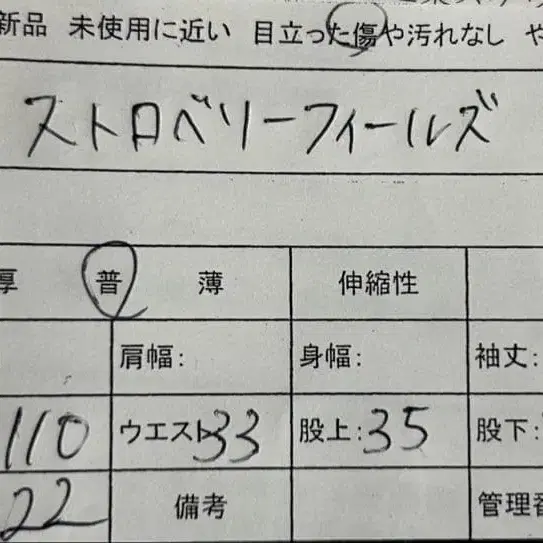 新品 未使用に近い 目立った傷や汚れなし や
ストロベリーフィールズ
厚 普 薄 伸縮性
肩幅: 身幅: 袖丈:
110 ウエスト33 股上:35 股下:
22 備考 管理番